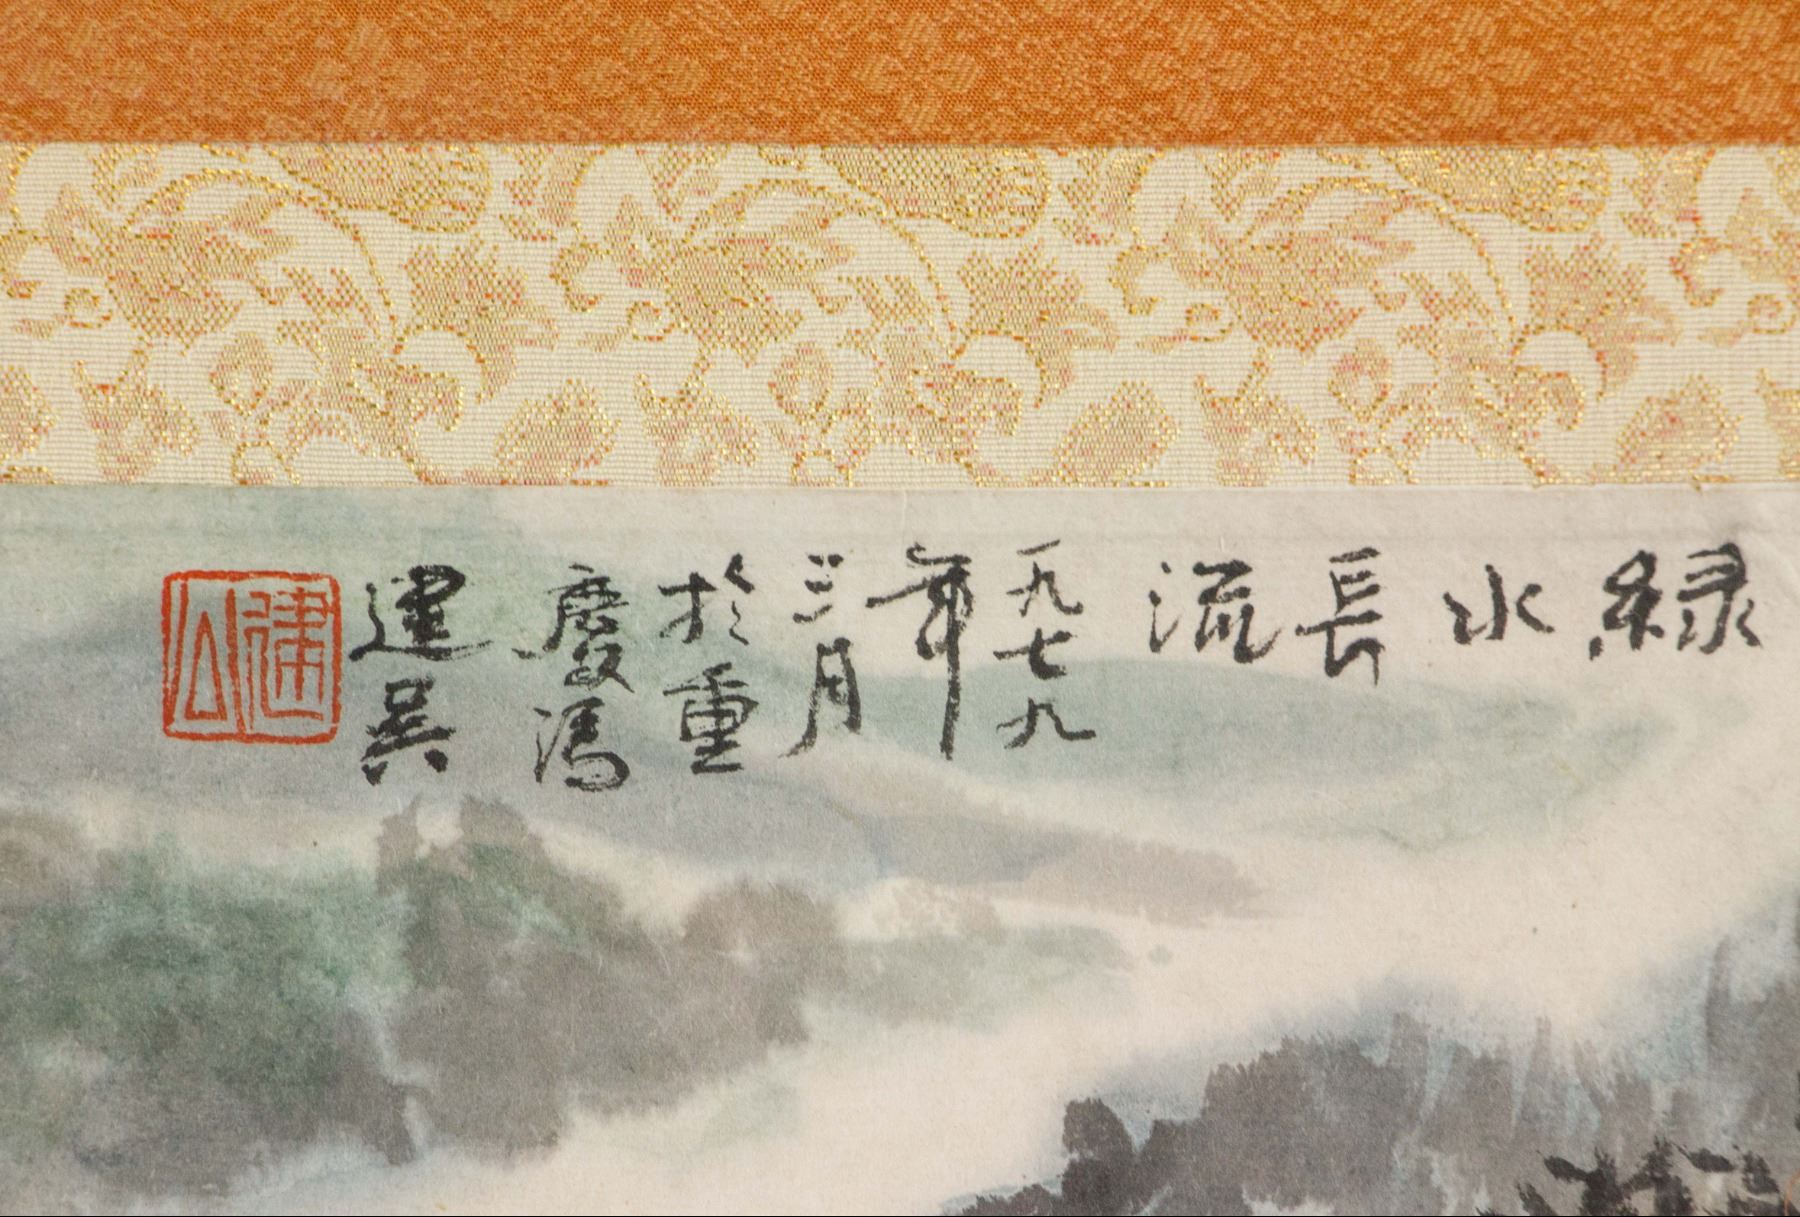 緑水長流
一九七九
年
三月
於重
慶馮
建吳
建吳